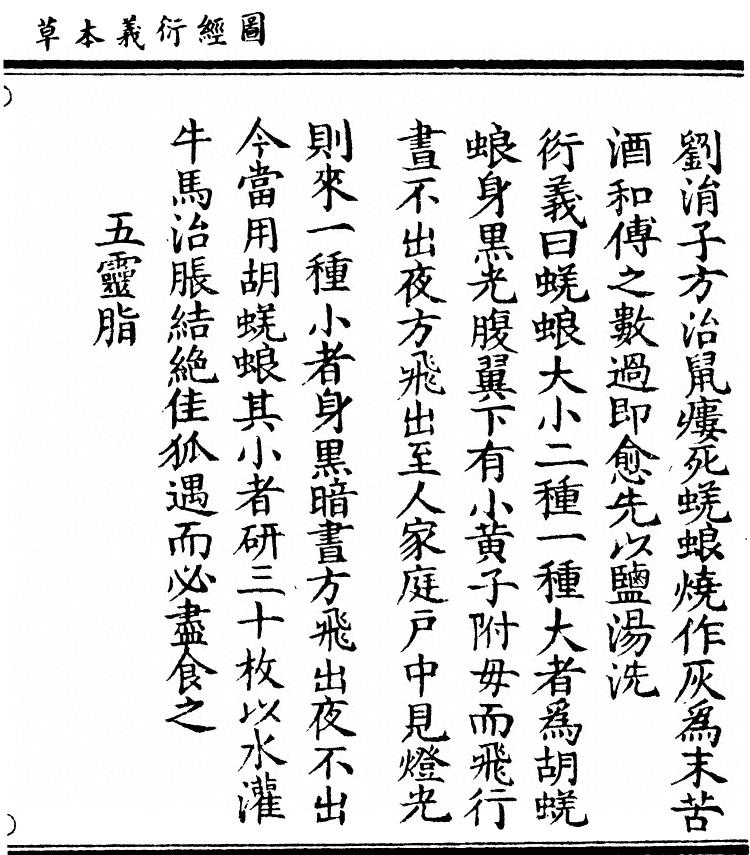 圖經衍義本草
劉涓子方治鼠瘻死蜣蜋燒作灰爲末苦
酒和傅之數過即愈先以鹽湯洗
衍義曰蜣蜋大小二種一種大者爲胡蜣
蜋身黑光腹翼下有小黄子附毋而飛行
晝不出夜方飛出至人家庭戸中見燈光
則來一種小者身黑暗晝方飛出夜不出
今當用胡蜣蜋其小者研三十枚以水灌
牛馬治脹結絶佳狐遇而必盡食之
五靈脂